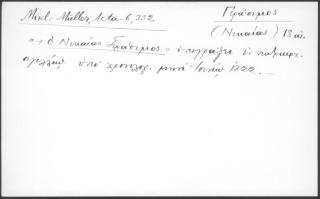 Mikl.-Müller, Acta-6, 332.
Γεράσιμος
(Νικαίας) 18 αἰ.
ὁ Νικαίας Γεράσιμος ὑπογράφει ἐν πατριαρχ.
ὑπὸ χρονολογ. μηνὶ Ἰουνίῳ 1722. —